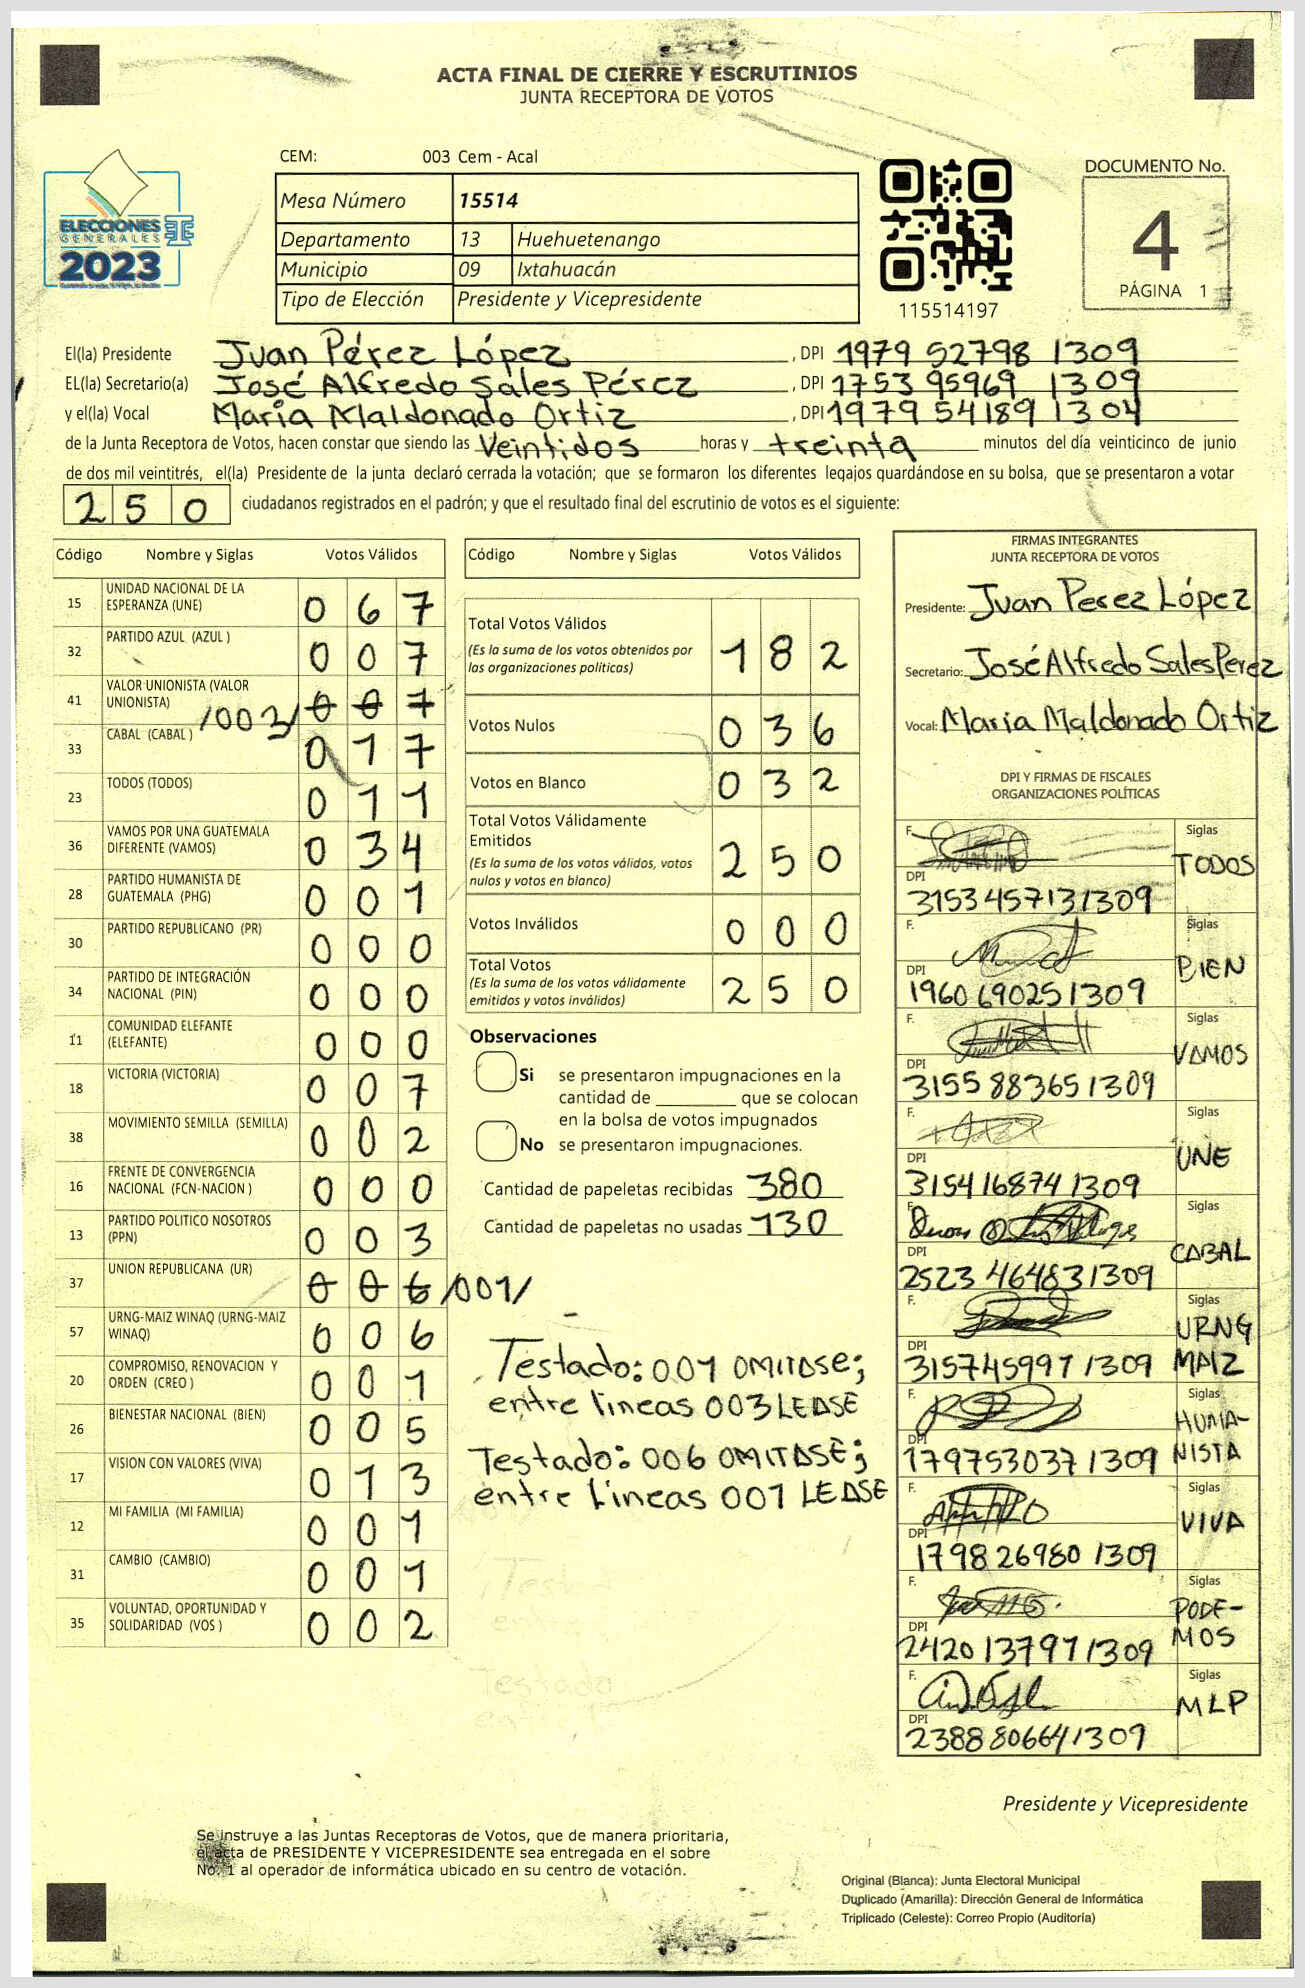 ACTA FINAL DE CIERRE Y ESCRUTINIOS
JUNTA RECEPTORA DE VOTOS
CEM: 003 Cem - Acal
DOCUMENTO No.
4
PÁGINA 1
ELECCIONES
GENERALES
2023
Mesa Número 15514
Departamento 13 Huehuetenango
Municipio 09 Ixtahuacán
Tipo de Elección Presidente y Vicepresidente
115514197
El(la) Presidente Juan Pérez López , DPI 1979 52798 1309
EL(la) Secretario(a) José Alfredo Sales Pérez , DPI 1753 95969 1309
y el(la) Vocal Maria Maldonado Ortiz , DPI 1979 54189 1304
de la Junta Receptora de Votos, hacen constar que siendo las Veintidos horas y treinta minutos del día veinticinco de junio
de dos mil veintitrés, el(la) Presidente de la junta declaró cerrada la votación; que se formaron los diferentes legajos quardándose en su bolsa, que se presentaron a votar
250 ciudadanos registrados en el padrón; y que el resultado final del escrutinio de votos es el siguiente:
Código Nombre y Siglas Votos Válidos
15 UNIDAD NACIONAL DE LA ESPERANZA (UNE) 067
32 PARTIDO AZUL (AZUL ) 007
41 VALOR UNIONISTA (VALOR UNIONISTA) /003/ 007
33 CABAL (CABAL ) 017
23 TODOS (TODOS) 011
36 VAMOS POR UNA GUATEMALA DIFERENTE (VAMOS) 034
28 PARTIDO HUMANISTA DE GUATEMALA (PHG) 001
30 PARTIDO REPUBLICANO (PR) 000
34 PARTIDO DE INTEGRACIÓN NACIONAL (PIN) 000
11 COMUNIDAD ELEFANTE (ELEFANTE) 000
18 VICTORIA (VICTORIA) 007
38 MOVIMIENTO SEMILLA (SEMILLA) 002
16 FRENTE DE CONVERGENCIA NACIONAL (FCN-NACION ) 000
13 PARTIDO POLITICO NOSOTROS (PPN) 003
37 UNION REPUBLICANA (UR) 006 /001/
57 URNG-MAIZ WINAQ (URNG-MAIZ WINAQ) 006
20 COMPROMISO, RENOVACION Y ORDEN (CREO ) 001
26 BIENESTAR NACIONAL (BIEN) 005
17 VISION CON VALORES (VIVA) 013
12 MI FAMILIA (MI FAMILIA) 001
31 CAMBIO (CAMBIO) 001
35 VOLUNTAD, OPORTUNIDAD Y SOLIDARIDAD (VOS ) 002
Código Nombre y Siglas Votos Válidos
Total Votos Válidos 182
(Es la suma de los votos obtenidos por
las organizaciones políticas)
Votos Nulos 036
Votos en Blanco 032
Total Votos Válidamente
Emitidos 250
(Es la suma de los votos válidos, votos
nulos y votos en blanco)
Votos Inválidos 000
Total Votos 250
(Es la suma de los votos válidamente
emitidos y votos inválidos)
Observaciones
Si se presentaron impugnaciones en la
cantidad de ________ que se colocan
en la bolsa de votos impugnados
No se presentaron impugnaciones.
Cantidad de papeletas recibidas 380
Cantidad de papeletas no usadas 130
Testado: 007 OMITASE;
entre lineas 003 LEASE
Testado: 006 OMITASE;
entre lineas 001 LEASE
FIRMAS INTEGRANTES
JUNTA RECEPTORA DE VOTOS
Presidente: Juan Perez López
Secretario: José Alfredo Sales Perez
Vocal: Maria Maldonado Ortiz
DPI Y FIRMAS DE FISCALES
ORGANIZACIONES POLÍTICAS
F. Siglas
TODOS
DPI 3153 45713 1309
F. Siglas
BIEN
DPI 1960 69025 1309
F. Siglas
VAMOS
DPI 3155 88365 1309
F. Siglas
UNE
DPI 3154 16874 1309
F. Siglas
CABAL
DPI 2523 46483 1309
F. Siglas
URNG MAIZ
DPI 3157 45997 1309
F. Siglas
HUMA-
NISTA
DPI 1797 53037 1309
F. Siglas
VIVA
DPI 1798 26980 1309
F. Siglas
PODE-
MOS
DPI 2420 13797 1309
F. Siglas
MLP
DPI 2388 80664 1309
Presidente y Vicepresidente
Se instruye a las Juntas Receptoras de Votos, que de manera prioritaria,
el acta de PRESIDENTE Y VICEPRESIDENTE sea entregada en el sobre
No. 1 al operador de informática ubicado en su centro de votación.
Original (Blanca): Junta Electoral Municipal
Duplicado (Amarilla): Dirección General de Informática
Triplicado (Celeste): Correo Propio (Auditoría)